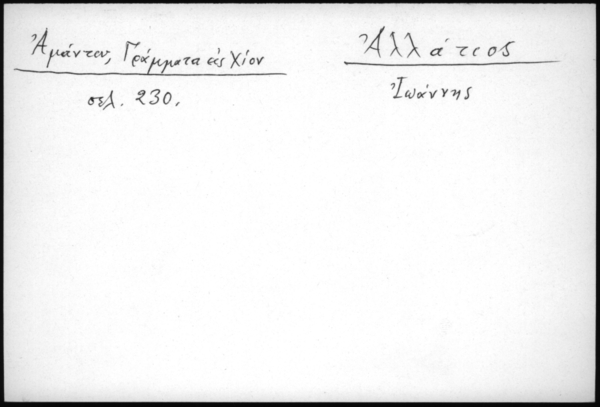 Ἀμάντου, Γράμματα εἰς Χίον
σελ. 230.
Ἀλλάτιος
Ἰωάννης